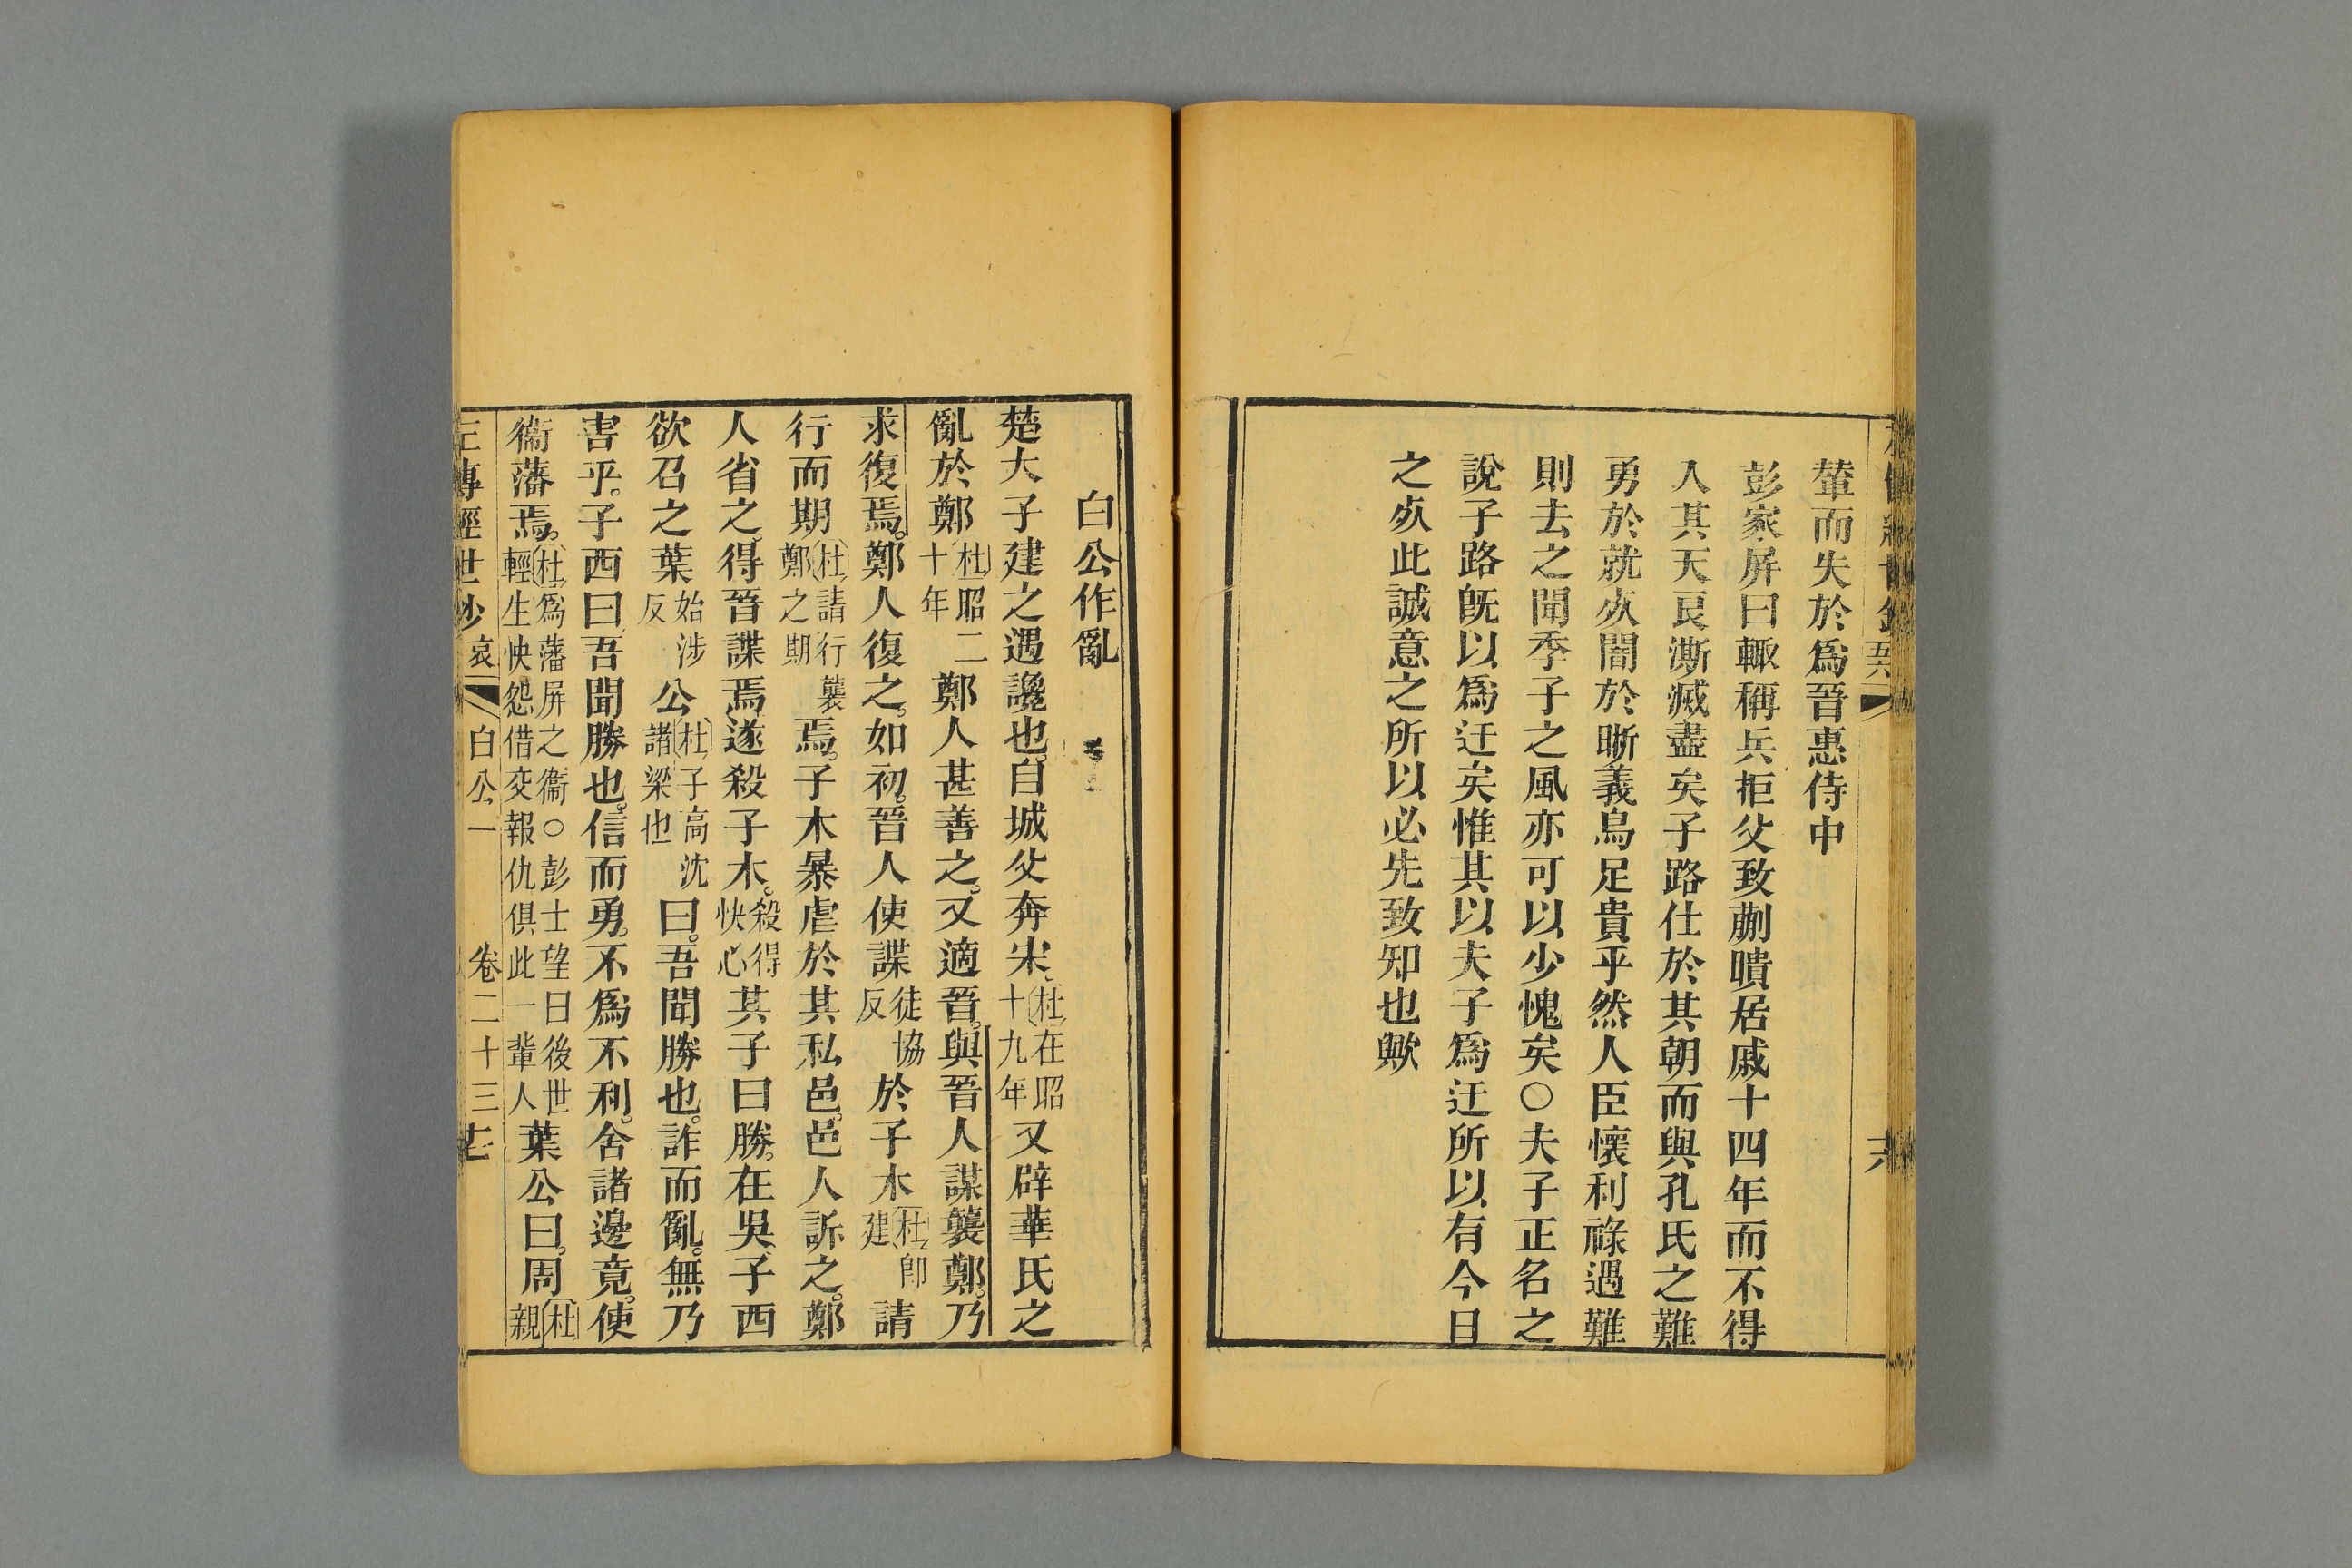 輦而失於爲晉惠侍中
彭家屏曰輙稱兵拒父致蒯聵居戚十四年而不得
人其天良澌滅盡矣子路仕於其朝而與孔氏之難
勇於就死闇於晰義烏足貴乎然人臣懷利祿遇難
則去之聞季子之風亦可以少愧矣○夫子正名之
說子路旣以爲迂矣惟其以夫子爲迂所以有今日
之死此誠意之所以必先致知也歟
白公作亂
楚大子建之遇讒也。自城父奔宋。杜在昭十九年又辟華氏之
亂於鄭杜昭二十年鄭人甚善之。又適晉。與晉人謀襲鄭。乃
求復焉。鄭人復之。如初。晉人使諜徒協反於子木杜卽建請
行而期杜請行襲鄭之期焉。子木暴虐於其私邑。邑人訴之。鄭
人省之。得晉諜焉。遂殺子木。殺得快心其子曰勝。在吳。子西
欲召之葉始涉反公杜子高沈諸梁也曰。吾聞勝也。詐而亂。無乃
害乎。子西曰。吾聞勝也。信而勇。不爲不利。舍諸邊竟。使
衞藩焉。杜爲藩屏之衞○彭士望曰後世輕生快怨借交報仇俱此一輩人葉公曰。周杜親
左傳經世鈔 哀 白公一 卷二十三 十七